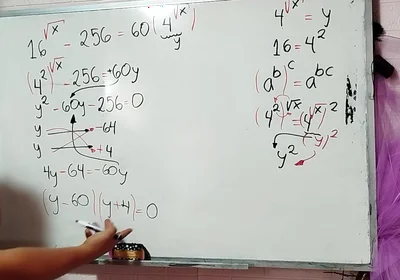 16^√x - 256 = 60(4^√x)
y
(4²)^√x - 256 = +60y
y² - 60y - 256 = 0
y -64
y +4
4y - 64 = -60y
(y - 60)(y + 4) = 0
4^√x = y
16 = 4²
(a^b)^c = a^bc
(4²)^√x = (4^√x)²
(y)²
y²